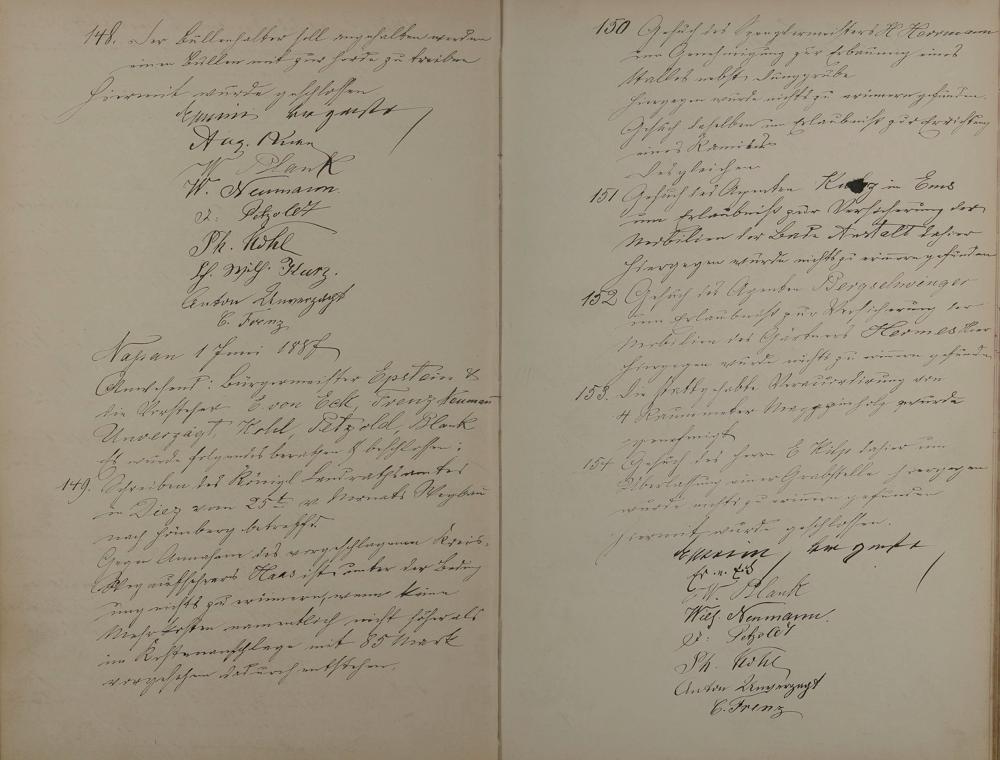 148. Der Bullenhalter soll angehalten werden
einen Bullen mit zur Herde zu treiben
Hiermit wurde geschlossen
Epstein
Aug.
W. Blank
W. Neumann.
F. Petzoldt
Ph. Kohl
Ph. Wilh. Kurz.
Anton Unverzagt
C. Frenz
Nassau 1 Juni 1887
Anwesend: Bürgermeister Epstein &
die Vorsteher E. von Eck, Frenz, Neumann
Unverzagt, Kohl, Petzold, Blank
Es wurde folgendes berathen & beschlossen:
149. Schreiben des Königl Landrathsamtes
in Diez vom 25t v. Monats Wegbau
nach betreffd.
Gegen Annahme des vorgeschlagenen Kreis-
Wegaufsehers Haas ist unter der Beding
ung nichts zu erinnern, wenn keine
Mehrkosten namentlich nicht höher als
im Kostenanschlage mit 85 Mark
vorgesehen dadurch entstehen.
150 Gesuch des Spenglermeisters H Herrmann
um Genehmigung zur Erbauung eines
Stalles nebst Dunggrube
Hiergegen wurde nichts zu erinnern gefunden.
Gesuch desselben um Erlaubniß zur Errichtung
eines Kamines
Desgleichen
151 Gesuch des Agenten in Ems
um Erlaubniß zur Versicherung der
Mobilien der Bade Anstalt dahier
Hiergegen wurde nichts zu erinnern gefunden
152 Gesuch des Agenten Bergschwenger
um Erlaubniß zur Versicherung der
Mobilien des Gärtners Hermes hier
Hiergegen wurde nichts zu erinnern gefunden
153. Die stattgehabte Verausordirung von
4 Raummeter wurde
genehmigt
154 Gesuch des Herrn E dahier um
Überlassung einer Grabstelle Hiergegen
wurde nichts zu erinnern gefunden
Hiermit wurde geschlossen.
Epstein
E. v. Eck
W. Blank
Wilh. Neumann.
F. Petzoldt
Ph. Kohl
Anton Unverzagt
C. Frenz